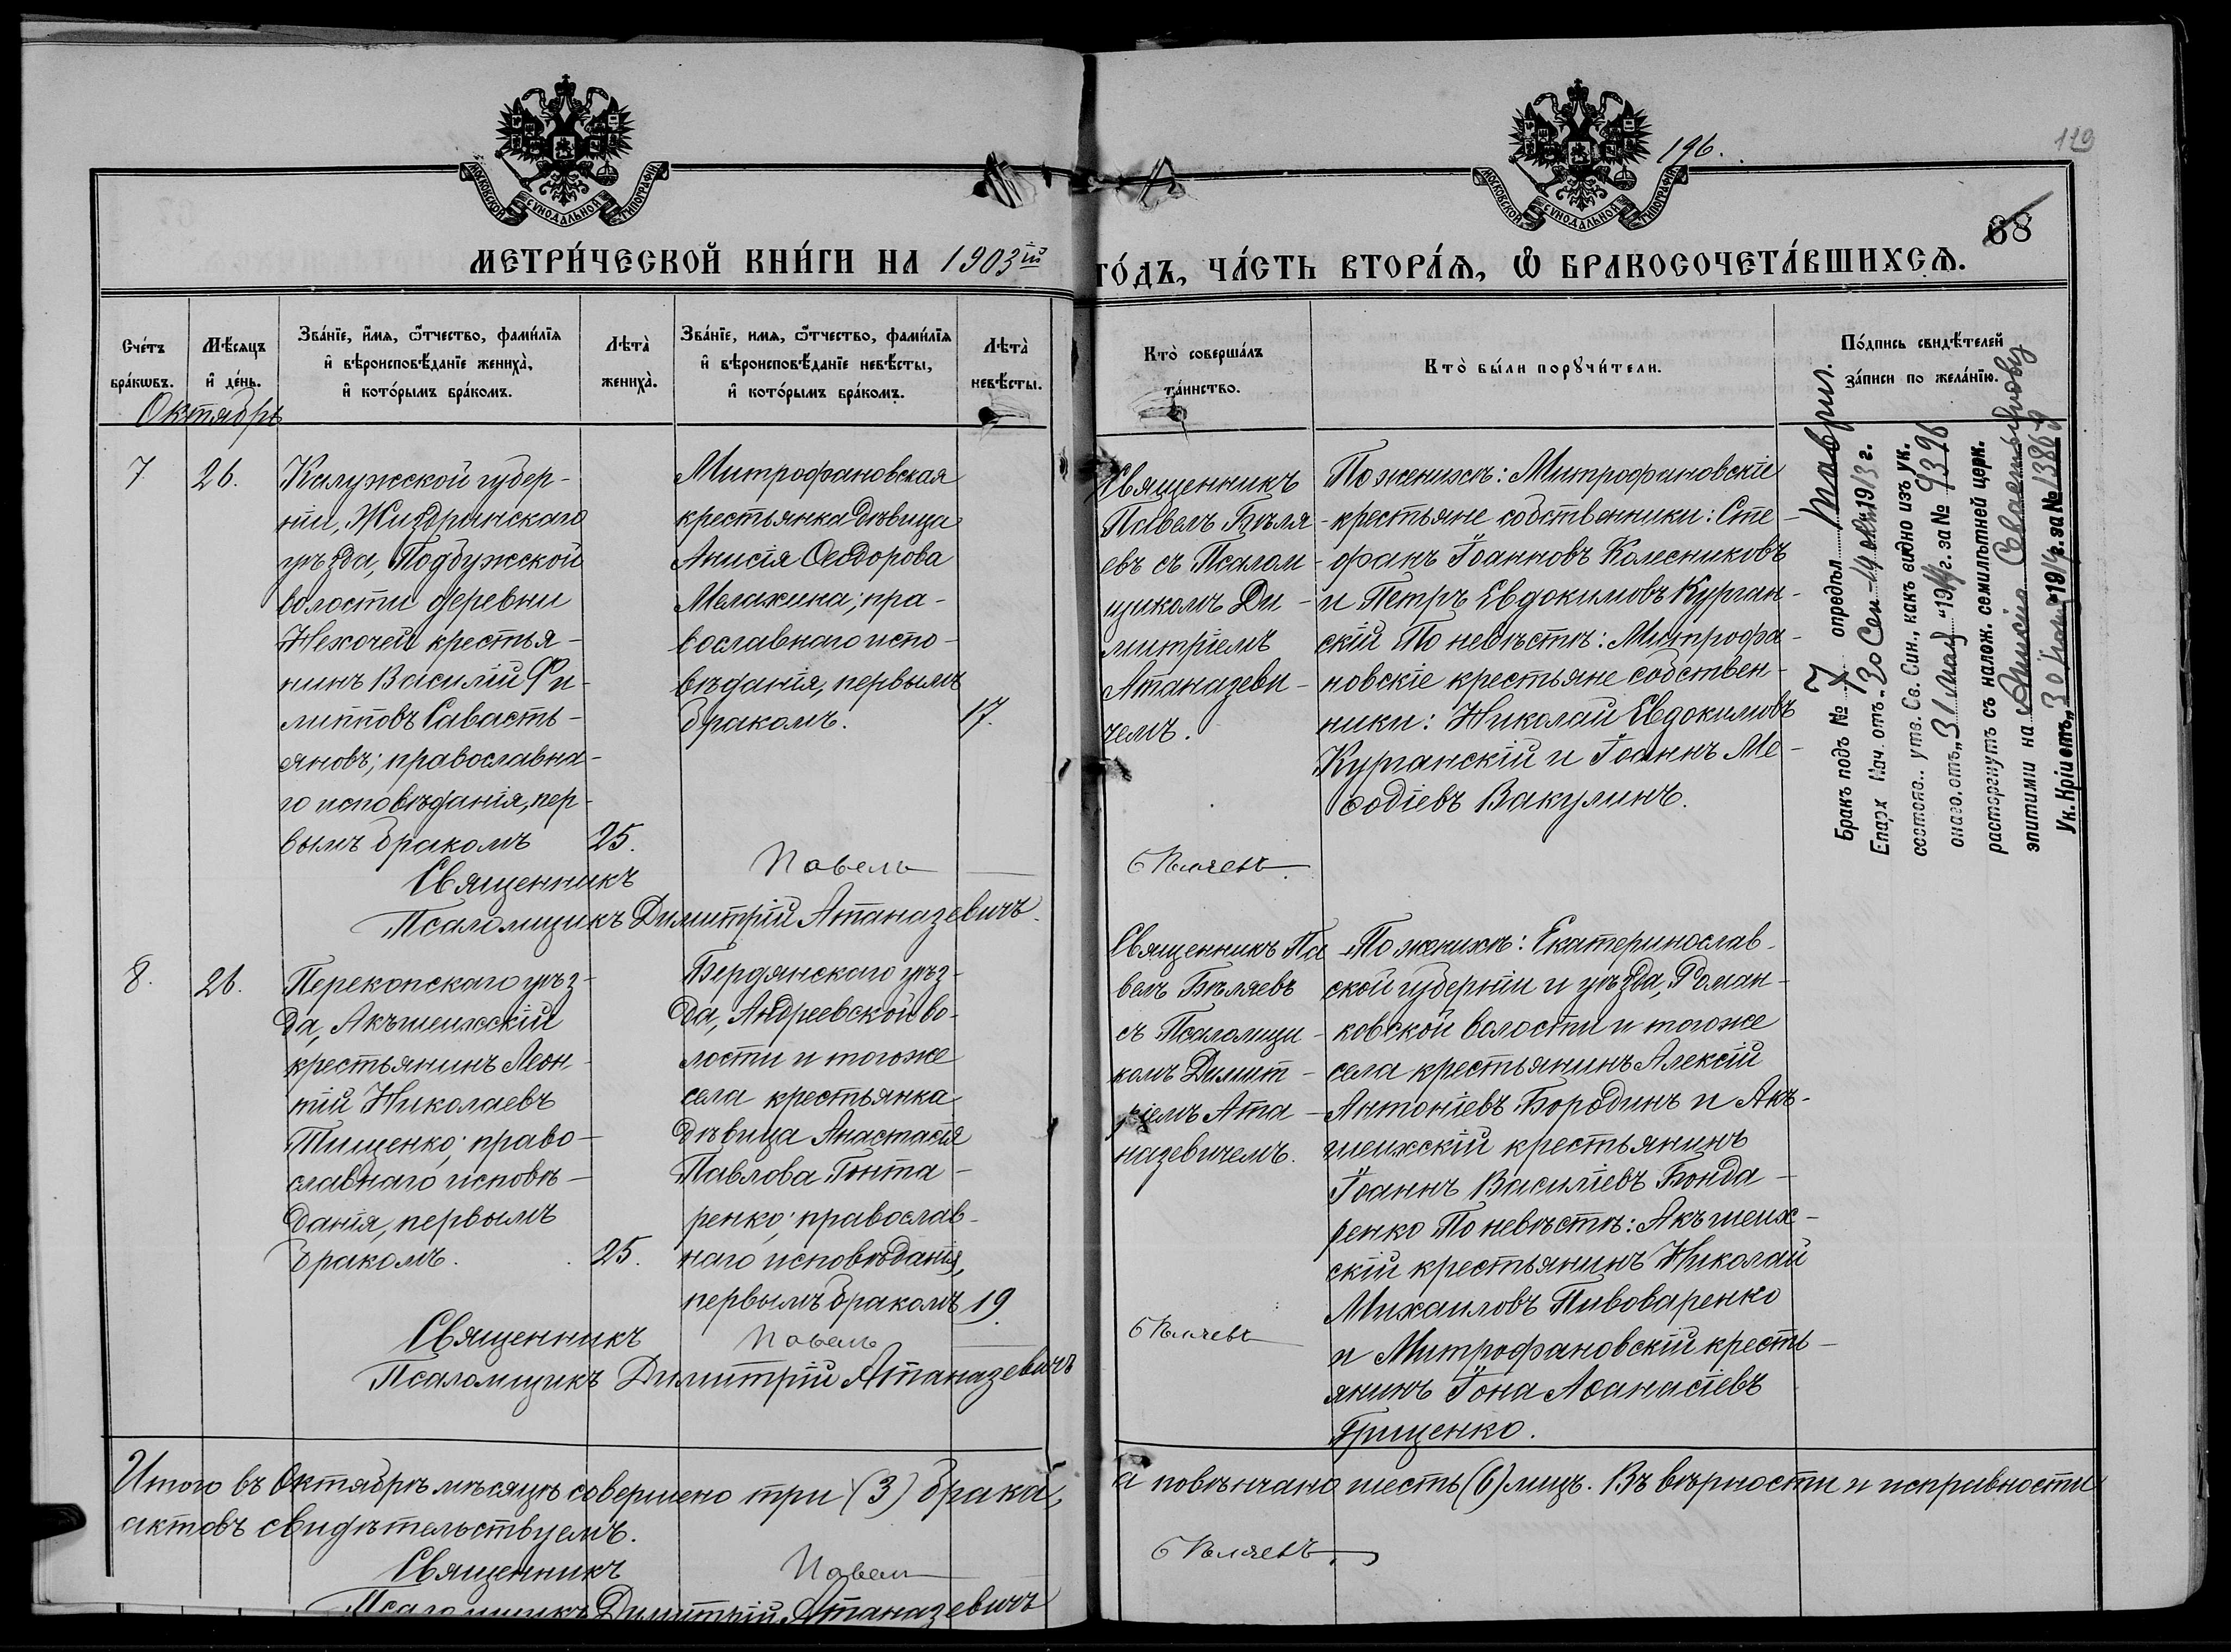 196.
119
68
МОСКОВСКОЙ СѴНОДАЛЬНОЙ ТИПОГРАФІИ
МОСКОВСКОЙ СѴНОДАЛЬНОЙ ТИПОГРАФІИ
МЕТРИ́ЧЕСКОЙ КНИ́ГИ НА 1903й
ГО́ДЪ, ЧА́СТЬ ВТОРА́Ѧ, Ѡ҆ БРАКОСОЧЕТА́ВШИХСѦ.
Сче́тъ бра́кѡвъ.
Мѣ́сѧцъ и҆ де́нь.
Зва́нїе, и҆́мѧ, ѻ҆́тчество, фами́лїѧ
и҆ вѣроисповѣ́данїе жениха̀,
и҆ кото́рымъ бра́комъ.
Лѣта̀ жениха̀.
Зва́нїе, имѧ, ѻ҆́тчество, фами́лїѧ
и҆ вѣроисповѣ́данїе невѣ́сты,
и҆ кото́рымъ бра́комъ.
Лѣта̀ невѣ́сты.
Кто̀ соверша́лъ
та́инство.
Кто̀ бы́ли порꙋчи́тели.
По́дпись свидѣ́телей
за́писи по жела́нїю.
Октябрь
7. 26.
Калужской губер-
ніи, Жиздринскаго
уѣзда, Подбужской
волости деревни
Нехочей крестья-
нинъ Василій Фи-
липповъ Савасть-
яновъ; православна-
го исповѣданія, пер-
вымъ бракомъ 25.
Митрофановская
крестьянка дѣвица
Анисія Ѳеодорова
Малахина; пра-
вославнаго испо-
вѣданія, первымъ
бракомъ. 17.
Священникъ
Павелъ Бѣля-
евъ съ Псалом-
щикомъ Ди-
митріемъ
Атаназеви-
чемъ.
По женихѣ: Митрофановскіе
крестьяне собственники: Сте-
фанъ Іоанновъ Колесниковъ
и Петръ Евдокимовъ Курган-
скій По невѣстѣ: Митрофа-
новскіе крестьяне собствен-
ники: Николай Евдокимовъ
Курганскій и Іоаннъ Ме-
ѳодіевъ Вакулинъ.
Бракъ подъ № 7 опредѣл. Таврич.
Епарх Нач. отъ „30 Сен-14 окт" 1913 г.
состояв. утв. Св. Син., какъ видно изъ ук.
онаго, отъ „31 мая" 1914 г. за № 9396
расторгнутъ съ налож. семилѣтней церк.
эпитиміи на Анисію Савастьянову
Ук. Кр отъ „30 1914 г. за № 13863
Священникъ Павелъ Бѣляевъ
Псаломщикъ Димитрій Атаназевичъ.
8. 26.
Перекопскаго уѣз-
да, Акъшеихскій
крестьянинъ Леон-
тій Николаевъ
Тищенко; право-
славнаго исповѣ-
данія, первымъ
бракомъ. 25.
Бердянскаго уѣз-
да, Андреевской во-
лости и тогоже
села крестьянка
дѣвица Анастасія
Павлова Гонта-
ренко; православ-
наго исповѣданія,
первымъ бракомъ 19.
Священникъ Па
велъ Бѣляевъ
съ Псаломщи-
комъ Димит-
ріемъ Ата-
назевичемъ.
По женихѣ: Екатеринослав-
ской губерніи и уѣзда, Роман-
ковской волости и тогоже
села крестьянинъ Алексій
Антоніевъ Бородинъ и Акъ-
шеихскій крестьянинъ
Іоаннъ Василіевъ Бонда-
ренко По невѣстѣ: Акъшеих-
скій крестьянинъ Николай
Михаиловъ Пивоваренко
и Митрофановскій кресть-
янинъ Іона Аѳанасіевъ
Грищенко.
Священникъ Павелъ Бѣляевъ
Псаломщикъ Димитрій Атаназевичъ
Итого въ Октябрѣ мѣсяцѣ совершено три (3) брака,
а повѣнчано шесть (6) лицъ. Въ вѣрности и исправности
актовъ свидѣтельствуемъ.
Священникъ Павелъ Бѣляевъ
Псаломщикъ Димитрій Атаназевичъ